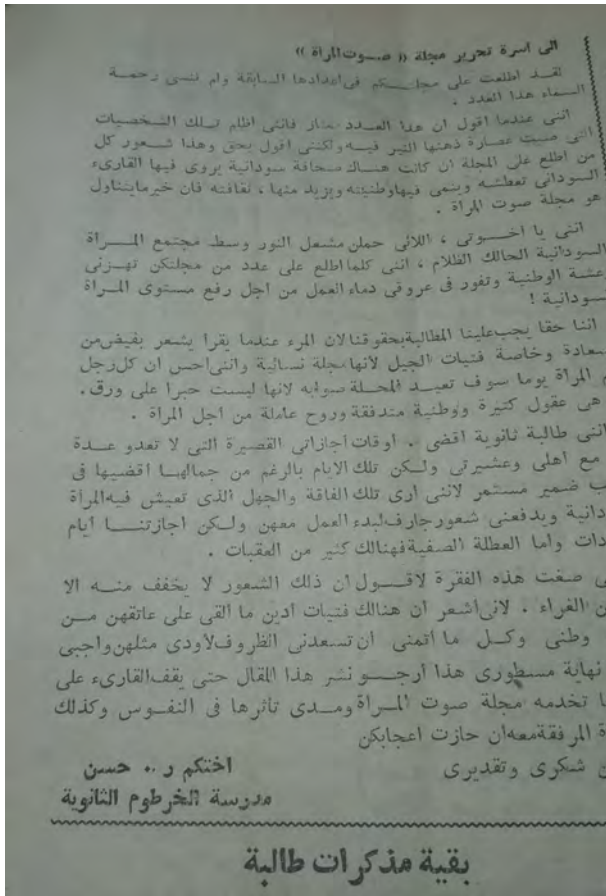 الى اسرة تحرير مجلة « صوت المراة »
لقد اطلعت على مجلتكم فى اعدادها السابقة ولم ننسى رحمة
السماء هذا العدد .
اننى عندما اقول ان هذا العدد ممتاز فاننى اظلم تلك الشخصيات
التى صبت عصارة ذهنها النير فيه ولكننى اقول بحق وهذا شعور كل
من اطلع على المجلة ان كانت هناك صحافة سودانية يروى فيها القارىء
السودانى تعطشه وينمى فيها وطنيته ويزيد منها ، ثقافته فان خير مايتناول
هو مجلة صوت المراة .
اننى يا اخوتى ، اللائى حملن مشعل النور وسط مجتمع المراة
السودانية الحالك الظلام ، اننى كلما اطلع على عدد من مجلتكن تهزنى
عشة الوطنية وتفور فى عروقى دماء العمل من اجل رفع مستوى المراة
سودانية !
اننا حقا يجب علينا المطالبة بحقوقنا لان المرء عندما يقرا يشعر بفيض من
سعادة وخاصة فتيات الجيل لانها مجلة نسائية واننى احس ان كل رجل
المراة يوما سوف تعيد المجلة صوابه لانها ليست حبرا على ورق .
هى عقول كثيرة ووطنية متدفقة وروح عاملة من اجل المراة .
اننى طالبة ثانوية اقضى .. اوقات اجازاتى القصيرة التى لا تعدو عدة
مع اهلى وعشيرتى ولكن تلك الايام بالرغم من جمالها اقضيها فى
ضمير مستمر لاننى ارى تلك الفاقة والجهل الذى تعيش فيه المراة
دانية ويدفعنى شعور جارف لبدء العمل معهن ولكن اجازتنا ايام
دات واما العطلة الصفية فهنالك كثير من العقبات .
صغت هذه الفقرة لاقول ان ذلك الشعور لا يخفف منه الا
الغراء . لانى اشعر ان هنالك فتيات ادين ما القى على عاتقهن من
وطنى وكل ما اتمنى ان تسعدنى الظروف لاودى مثلهن واجبى
نهاية مسطورى هذا ارجو نشر هذا المقال حتى يقف القارىء على
ا تخدمه مجلة صوت المراة ومدى تاثرها فى النفوس وكذلك
ة المرفقة معه ان حازت اعجابكن
شكرى وتقديرى
اختكم ر .. حسن
مدرسة الخرطوم الثانوية
بقية مذكرات طالبة